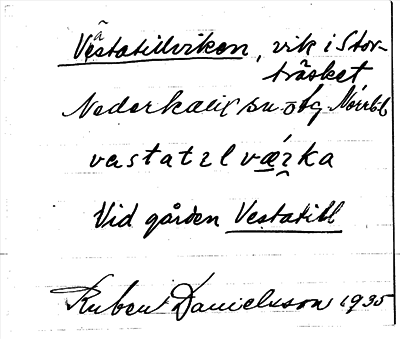 Västatillviken, vik i Stor-
träsket
Nederkalix sn o tg Norrb.l
vestatɛl væ̀ɪka
Vid gården Vestatill
Ruben Danielsson 1935